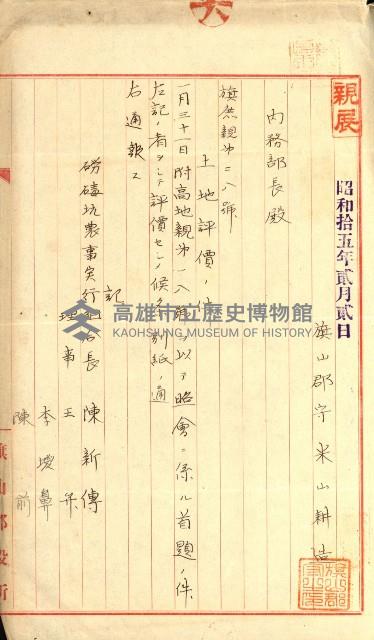 親展
昭和拾五年貳月貳日
旗山郡守米山耕造
內務部長殿
旗庶親第二八號
土地評價ノ件
一月三十一日附高地親第一八號ヲ以テ照會ニ係ル首題ノ件
左記ノ者ヲシテ評價セシメ候処別紙ノ通
右通報ス
記
磅磅坑農事実行組合長 陳新傳
理事 王
李
陳前
旗山郡役所
高雄市立歷史博物館
KAOHSIUNG MUSEUM OF HISTORY